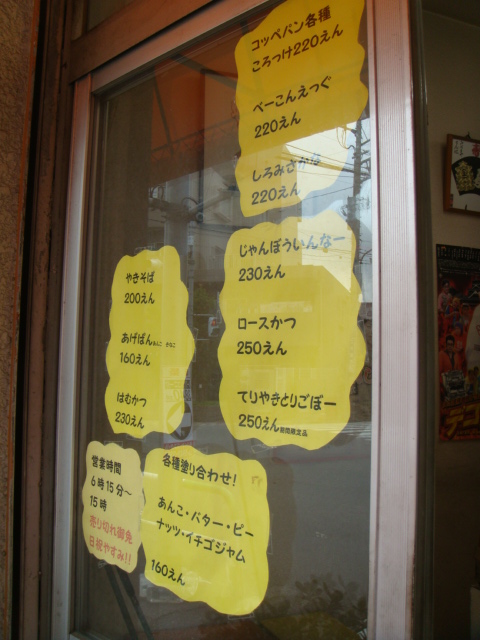 コッペパン各種
ころっけ220えん
べーこんえっぐ
220えん
しろみさかな
220えん
じゃんぼういんなー
230えん
ロースかつ
250えん
てりやきとりごぼー
250えん期間限定品
やきそば
200えん
あげぱんあんこ きなこ
160えん
はむかつ
230えん
営業時間
6時15分〜
15時
売り切れ御免
日祝やすみ!!
各種塗り合わせ!
あんこ・バター・ピー
ナッツ・イチゴジャム
160えん